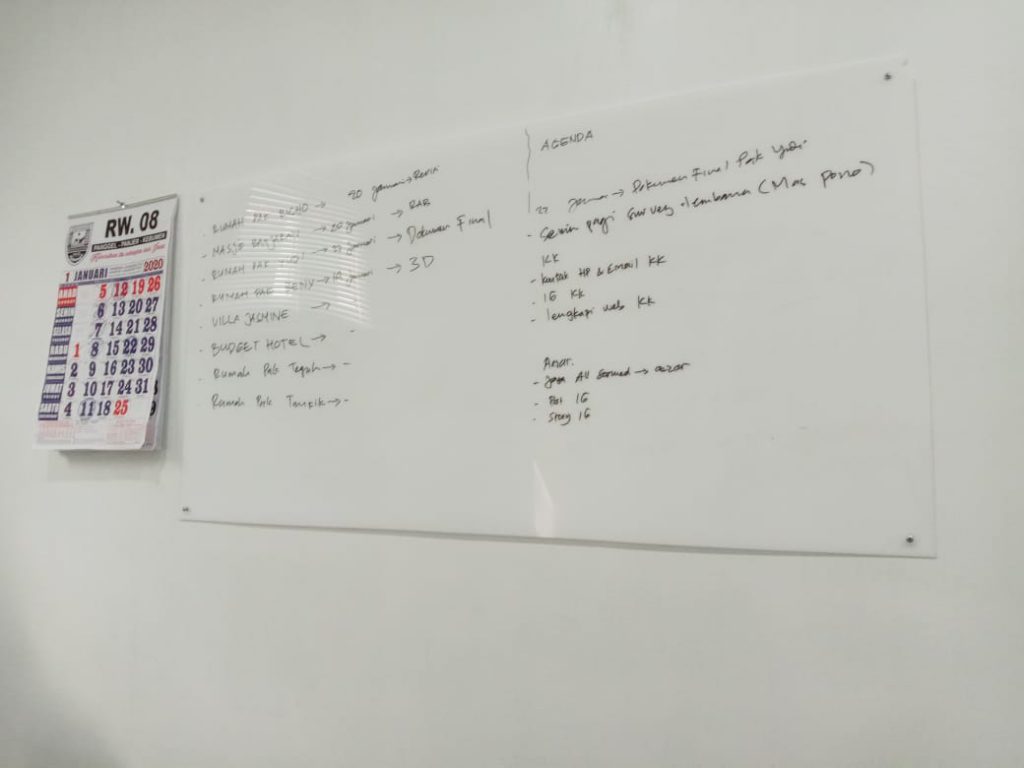 RW. 08
PANGGEL - PANJER - KEBUMEN
1 JANUARI 2020
AHAD 5 12 19 26
SENIN 6 13 20 27
SELASA 7 14 21 28
RABU 1 8 15 22 29
KAMIS 2 9 16 23 30
JUMAT 3 10 17 24 31
SABTU 4 11 18 25
- RUMAH PAK → 20 Januari → Revisi
- → 20 Januari → RAB
- RUMAH PAK → Januari → Dokumen Final
- RUMAH → Januari → 3D
- VILLA JASMINE →
- BUDGET HOTEL → -
- Rumah Pak Teguh → -
- Rumah Pak Taufik → -
AGENDA
22 Januari → Dokumen Final Pak
- Senin pagi survey Lembana (Mas Pono)
KK
- kontak HP & Email KK
- IG KK
- lengkapi web KK
- All
- Post IG
- Story IG